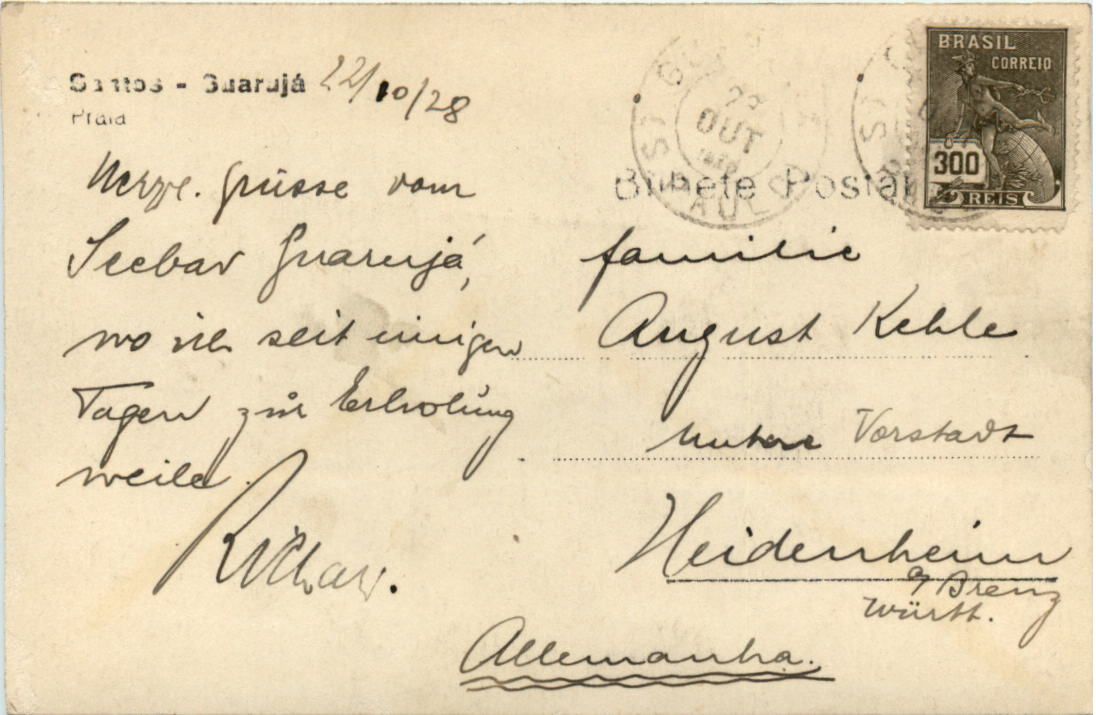 Santos - Guarujá 22/10/28
Praia
Herzl. Grüsse vom
Seebad Guarujá,
wo ich seit einigen
Tagen zur Erholung
weile.
Richard.
BRASIL
CORREIO
300
REIS
OUT
Bilhete Postal
Familie
August Kehle
untere Vorstadt
Heidenheim
a/Brenz
Württ.
Allemanha.